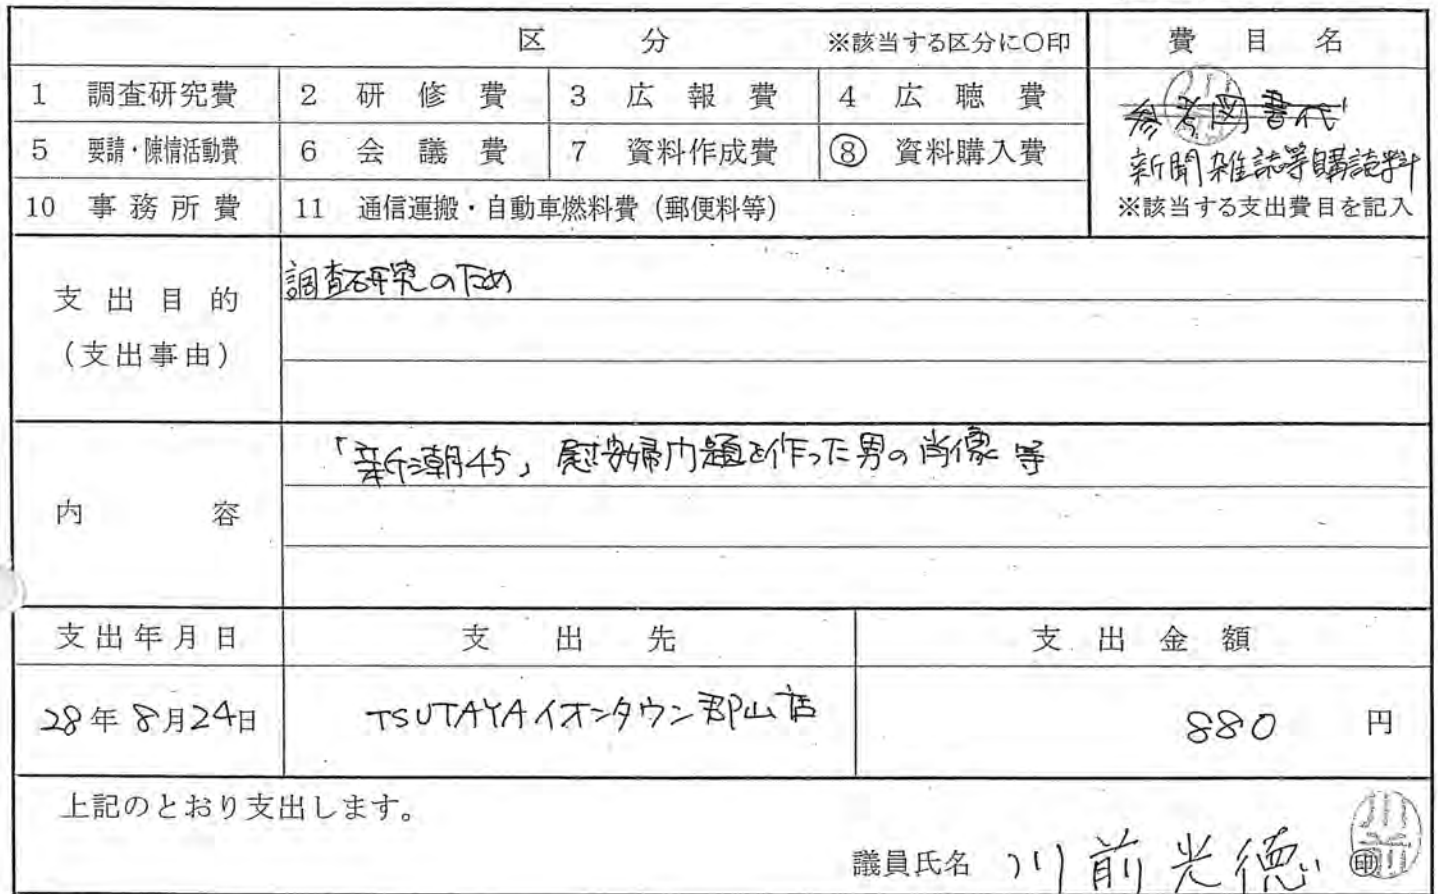 区 分 ※該当する区分に○印 費 目 名
1 調査研究費 2 研 修 費 3 広 報 費 4 広 聴 費
参考図書代
5 要請・陳情活動費 6 会 議 費 7 資料作成費 ⑧ 資料購入費
新聞雑誌等購読料
10 事 務 所 費 11 通信運搬・自動車燃料費(郵便料等)
※該当する支出費目を記入
支 出 目 的
(支出事由)
調査研究のため
内 容
「新潮45」慰安婦問題を作った男の肖像 等
支出年月日 支 出 先 支 出 金 額
28年8月24日 TSUTAYAイオンタウン郡山店 880 円
上記のとおり支出します。
議員氏名 川前光徳 ㊞
川前